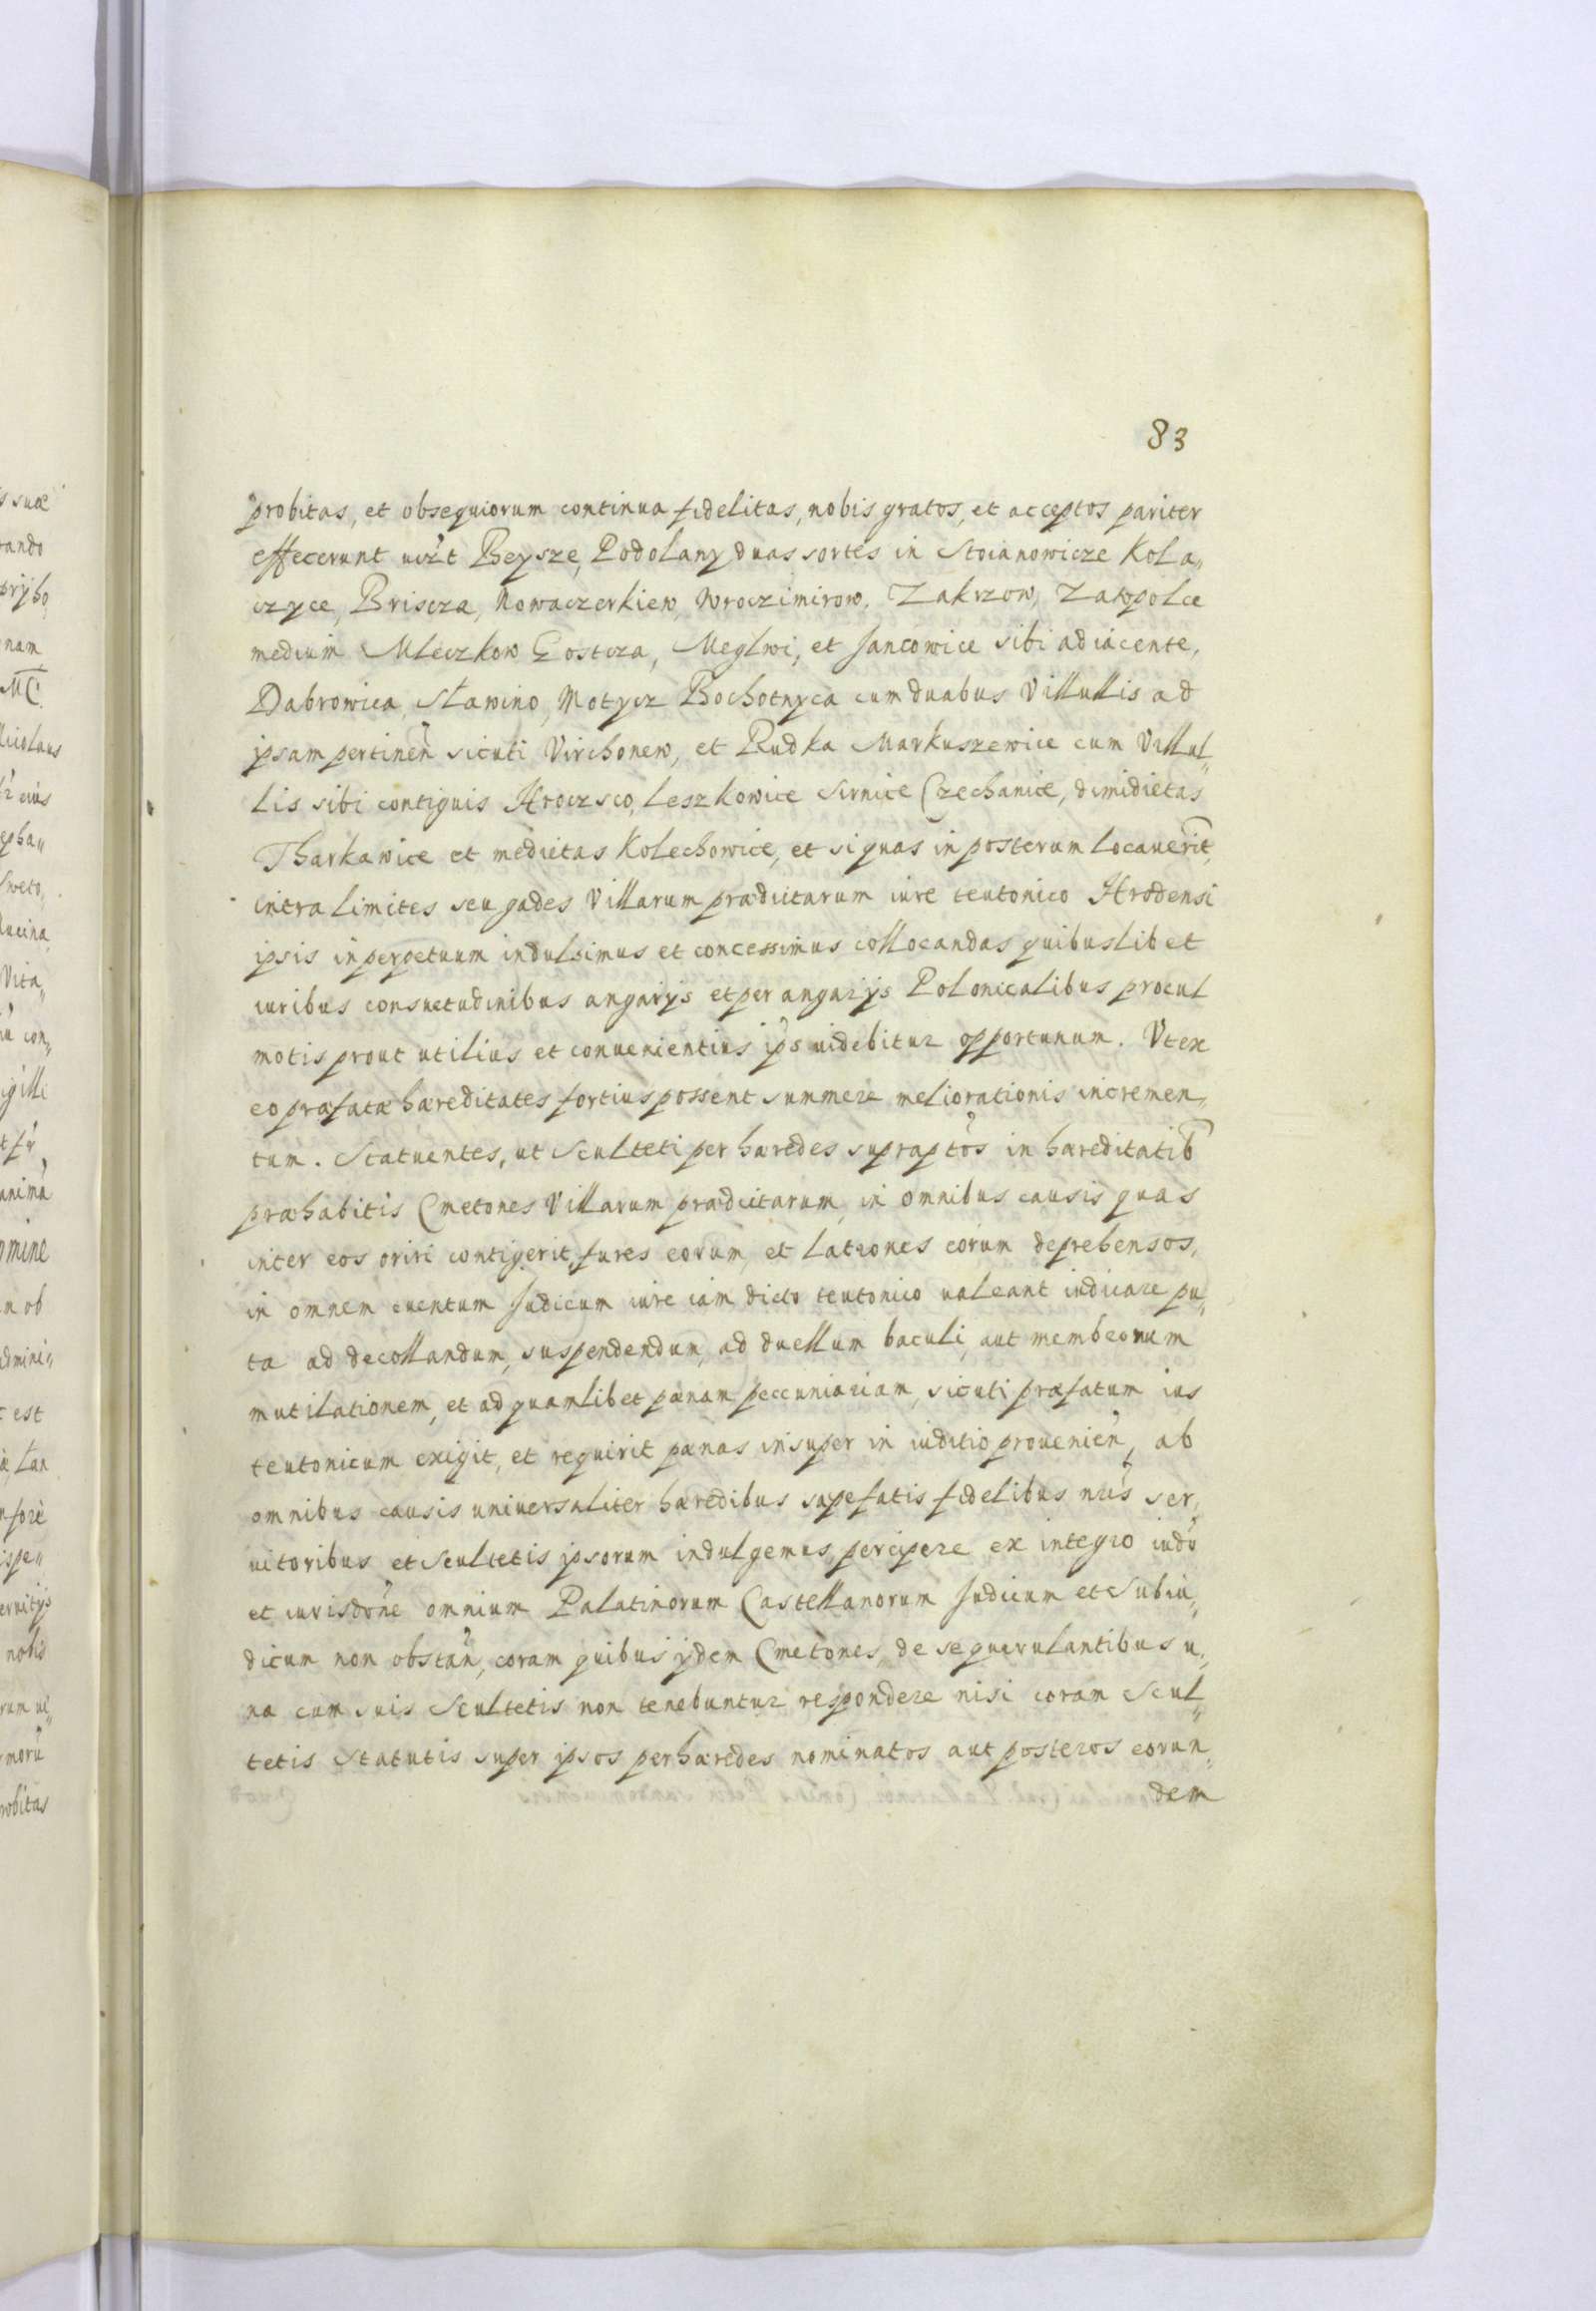 83
probitas, et obsequiorum continua fidelitas, nobis gratos, et acceptos pariter
effecerunt uizt Beysze, Podolany duas sortes in Stoianowicze Kola„
czyce, Briscza, Nowaczerkiew, Wroczimirow, Zakrzow, Zatopolce
medium Mleczkow Gostcza, Meglwi, et Jancowice sibi adiacente,
Dabrowica, Slawino, Motycz Bochotnyca cum duabus Villullis ad
ipsam pertinen̄ sicuti Virchonew, et Rudka Markuszewice cum Villul„
lis sibi contiguis Hroczsco, Leszkowice Sirnice Czechanice, dimidietas
Tharkawice et medietas Kolechowice, et si quas in posterum locauerit,
intra limites seu gades Villarum prædictarum iure teutonico Hrodensi
ipsis in perpetuum indulsimus et concessimus collocandas quibuslibet
iuribus consuetudinibus angarijs et per angarijs Polonicalibus procul
motis prout utilius et conuenientius ips uidebitur opportunum. Vt ex
eo præfatæ hæreditates fortius possent summere meliorationis incremen„
tum. Statuentes, ut Sculteti per hæredes supraptos in hæreditatib
præhabitis Cmetones Villarum prædictarum, in omnibus causis quas
inter eos oriri contigerit, fures eorum, et latrones eorum deprehensos,
in omnem euentum Judicum iure iam dicto teutonico ualeant iudicare pu„
ta ad decollandum, suspendendum, ad duellum baculi, aut membrorum
mutilationem, et ad quamlibet pænam peccuniariam, sicuti præfatum ius
teutonicum exigit, et requirit pænas insuper in iuditio prouenien̄, ab
omnibus causis uniuersaliter hæredibus sæpefatis fidelibus nris ser„
uitoribus et Scultetis ipsorum indulgemus, percipere ex integro iudo
et iurisdone omnium Palatinorum Castellanorum Judicum et Subiu„
dicum non obstan̄, coram quibus ijdem Cmetones, de se querulantibus u„
na cum suis Scultetis non tenebuntur respondere nisi coram Scul„
tetis Statutis super ipsos per hæredes nominatos aut posteros eorun„
dem